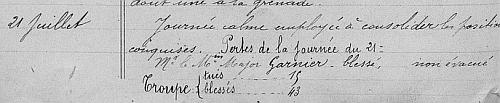 dont une à la grenade.
21 Juillet Journée calme employée à consolider les positions
conquises. Pertes de la journée du 21-
Mr le Min Major Garnier - blessé non évacué
Troupe { tués ...... 15
blessés ...... 43